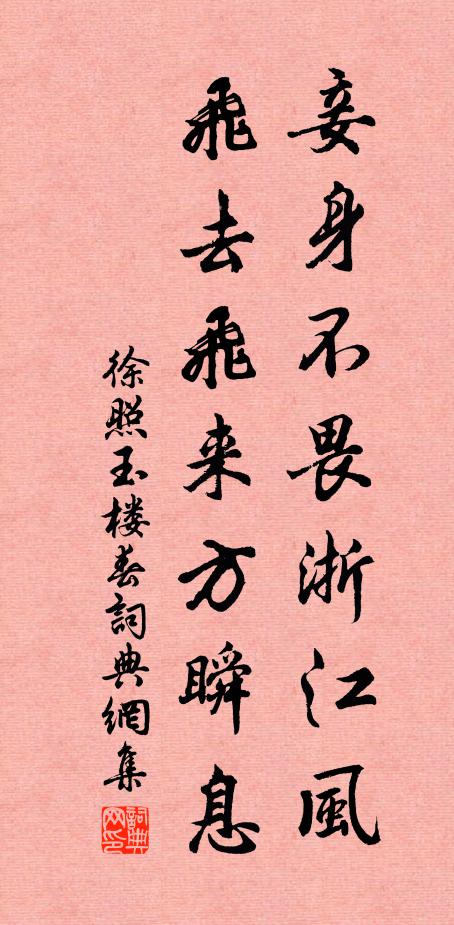 妾身不畏浙江風
飛去飛来方瞬息
徐照玉楼春詞典網集
詞典网印